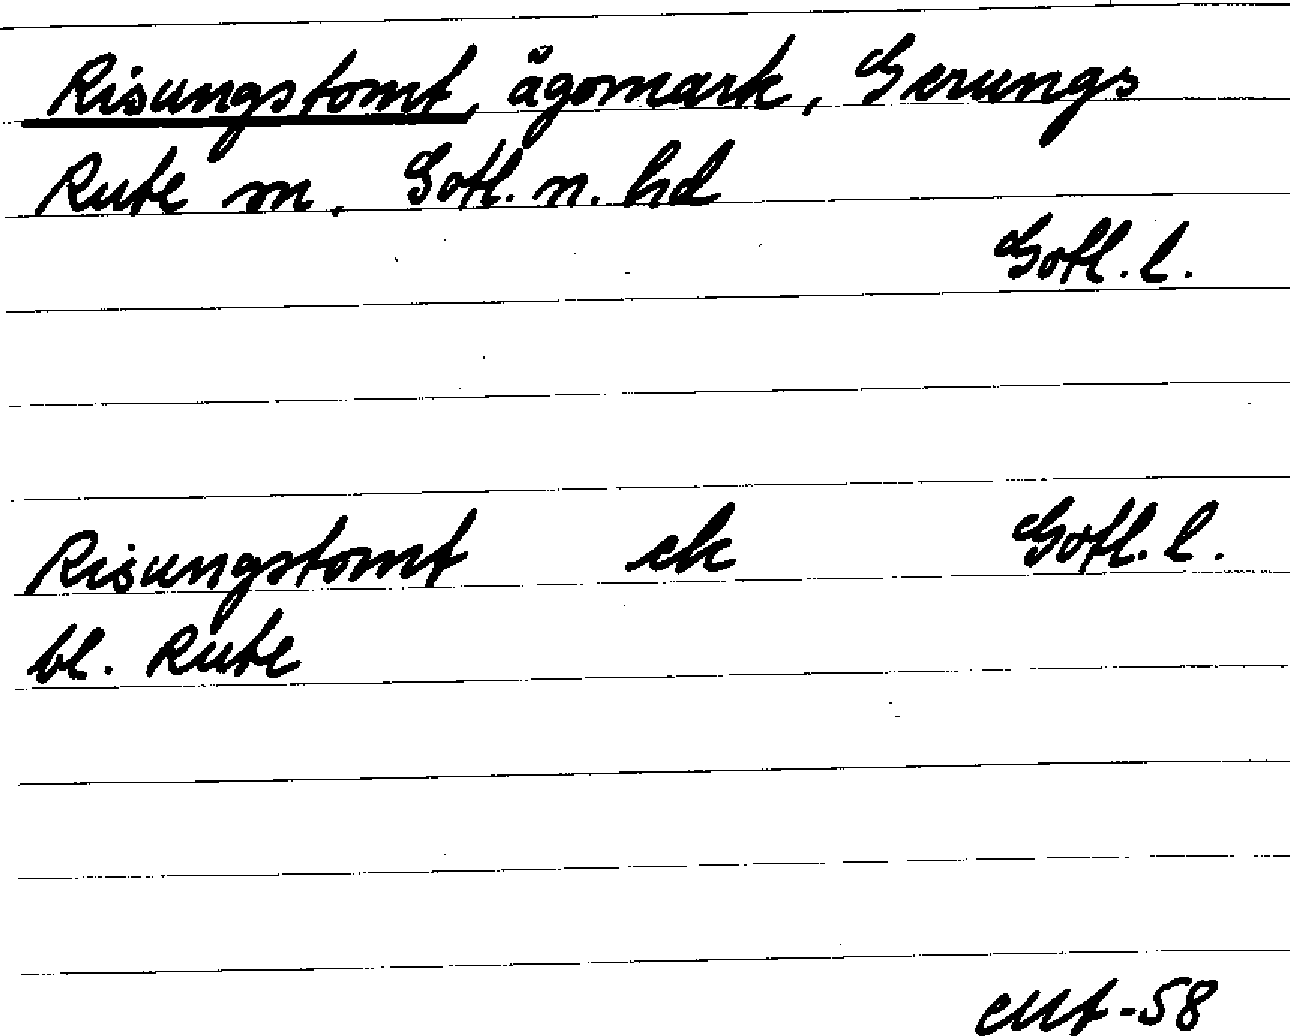 Risungstomt, ägomark, Gerungs
Rute sn, Gotl. n. hd
Gotl. l.
Risungstomt ek Gotl. l.
bl. Rute